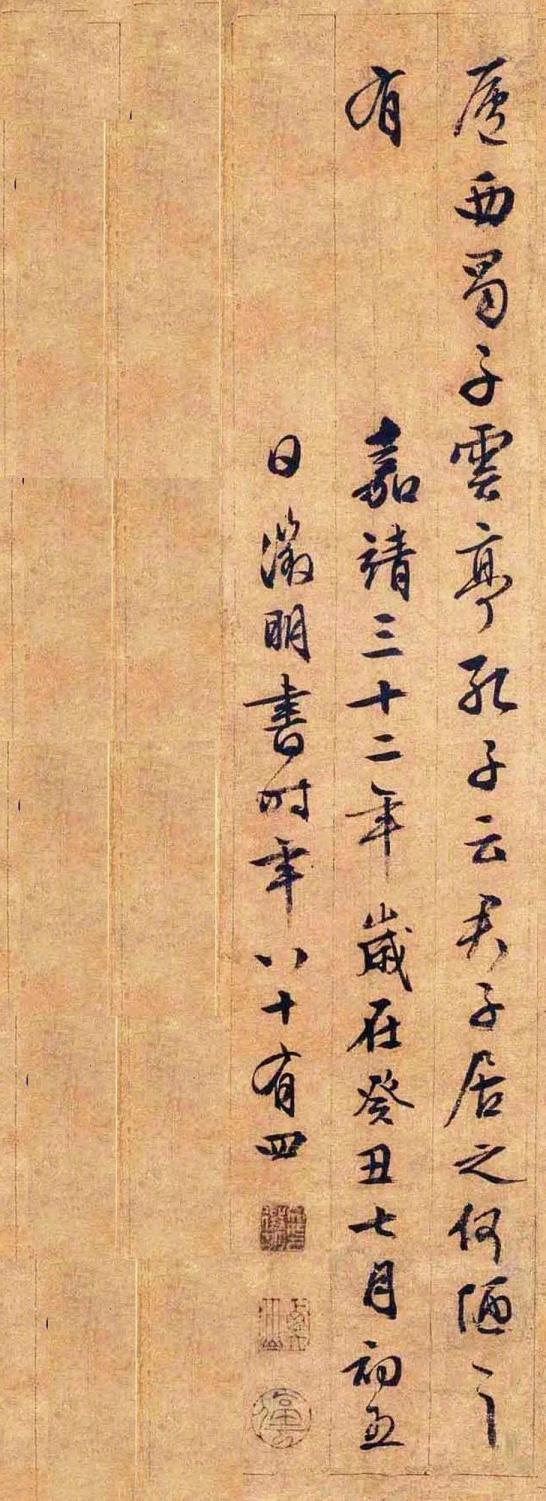 廬西蜀子雲亭孔子云君子居之何陋之
有 嘉靖三十二年歲在癸丑七月初五
日徵明書時年八十有四